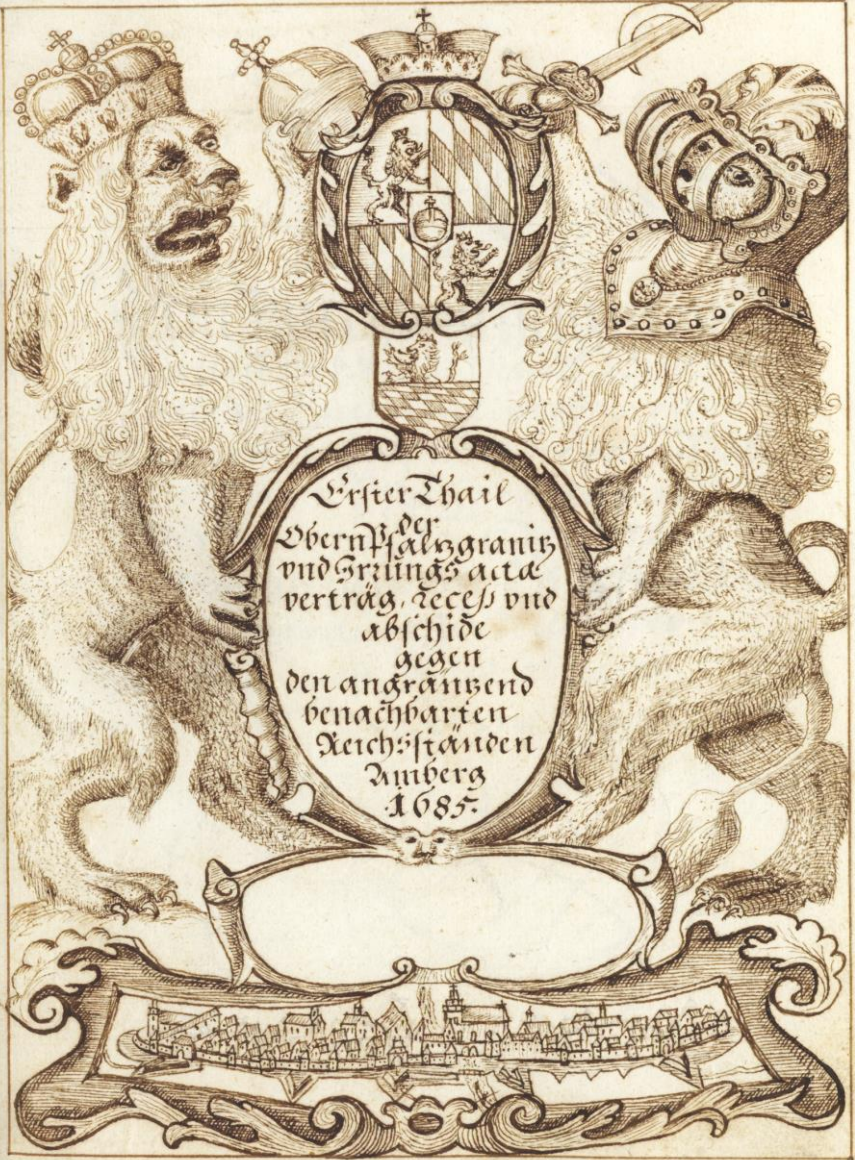 Erster Thail
der
Obern Pfaltzgranitz
vnd Irrungs acta
verträg, recess vnd
abschide
gegen
den angräntzend
benachbarten
Reichsständen
Amberg
1685.